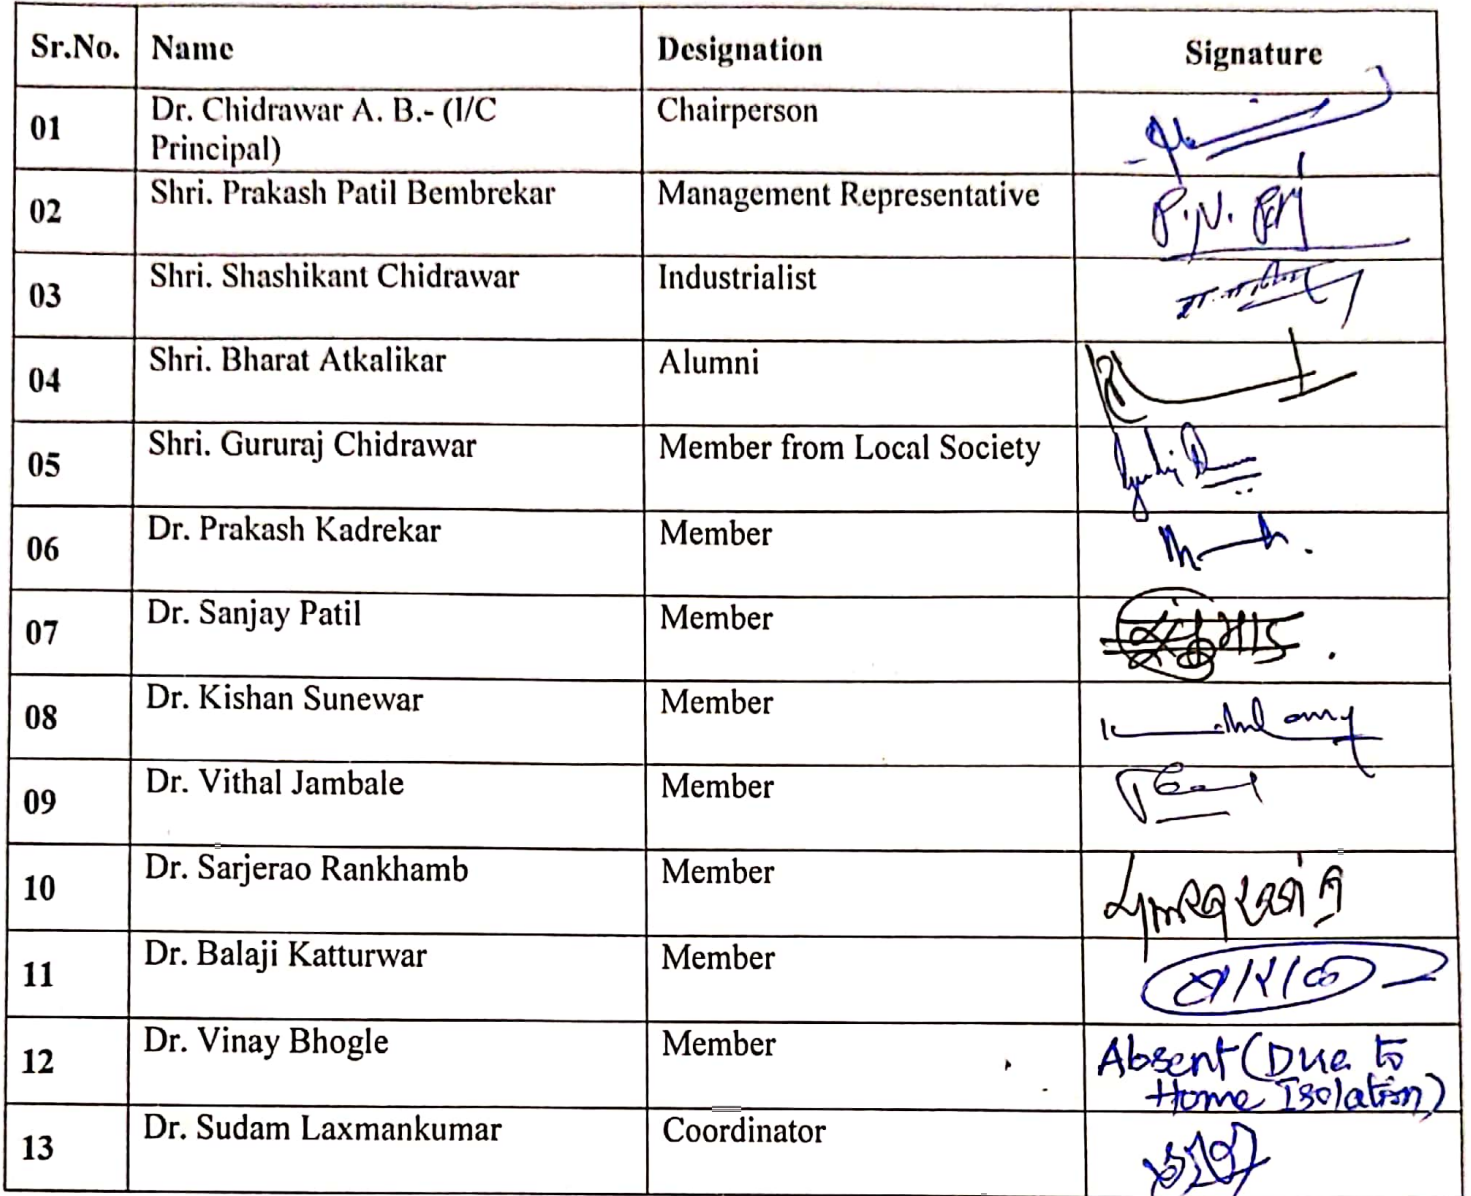 Sr.No. Name Designation Signature
01 Dr. Chidrawar A. B.- (I/C Chairperson
Principal)
02 Shri. Prakash Patil Bembrekar Management Representative
03 Shri. Shashikant Chidrawar Industrialist
04 Shri. Bharat Atkalikar Alumni
05 Shri. Gururaj Chidrawar Member from Local Society
06 Dr. Prakash Kadrekar Member
07 Dr. Sanjay Patil Member
08 Dr. Kishan Sunewar Member
09 Dr. Vithal Jambale Member
10 Dr. Sarjerao Rankhamb Member
11 Dr. Balaji Katturwar Member
12 Dr. Vinay Bhogle Member Absent (Due to
Home Isolation)
13 Dr. Sudam Laxmankumar Coordinator